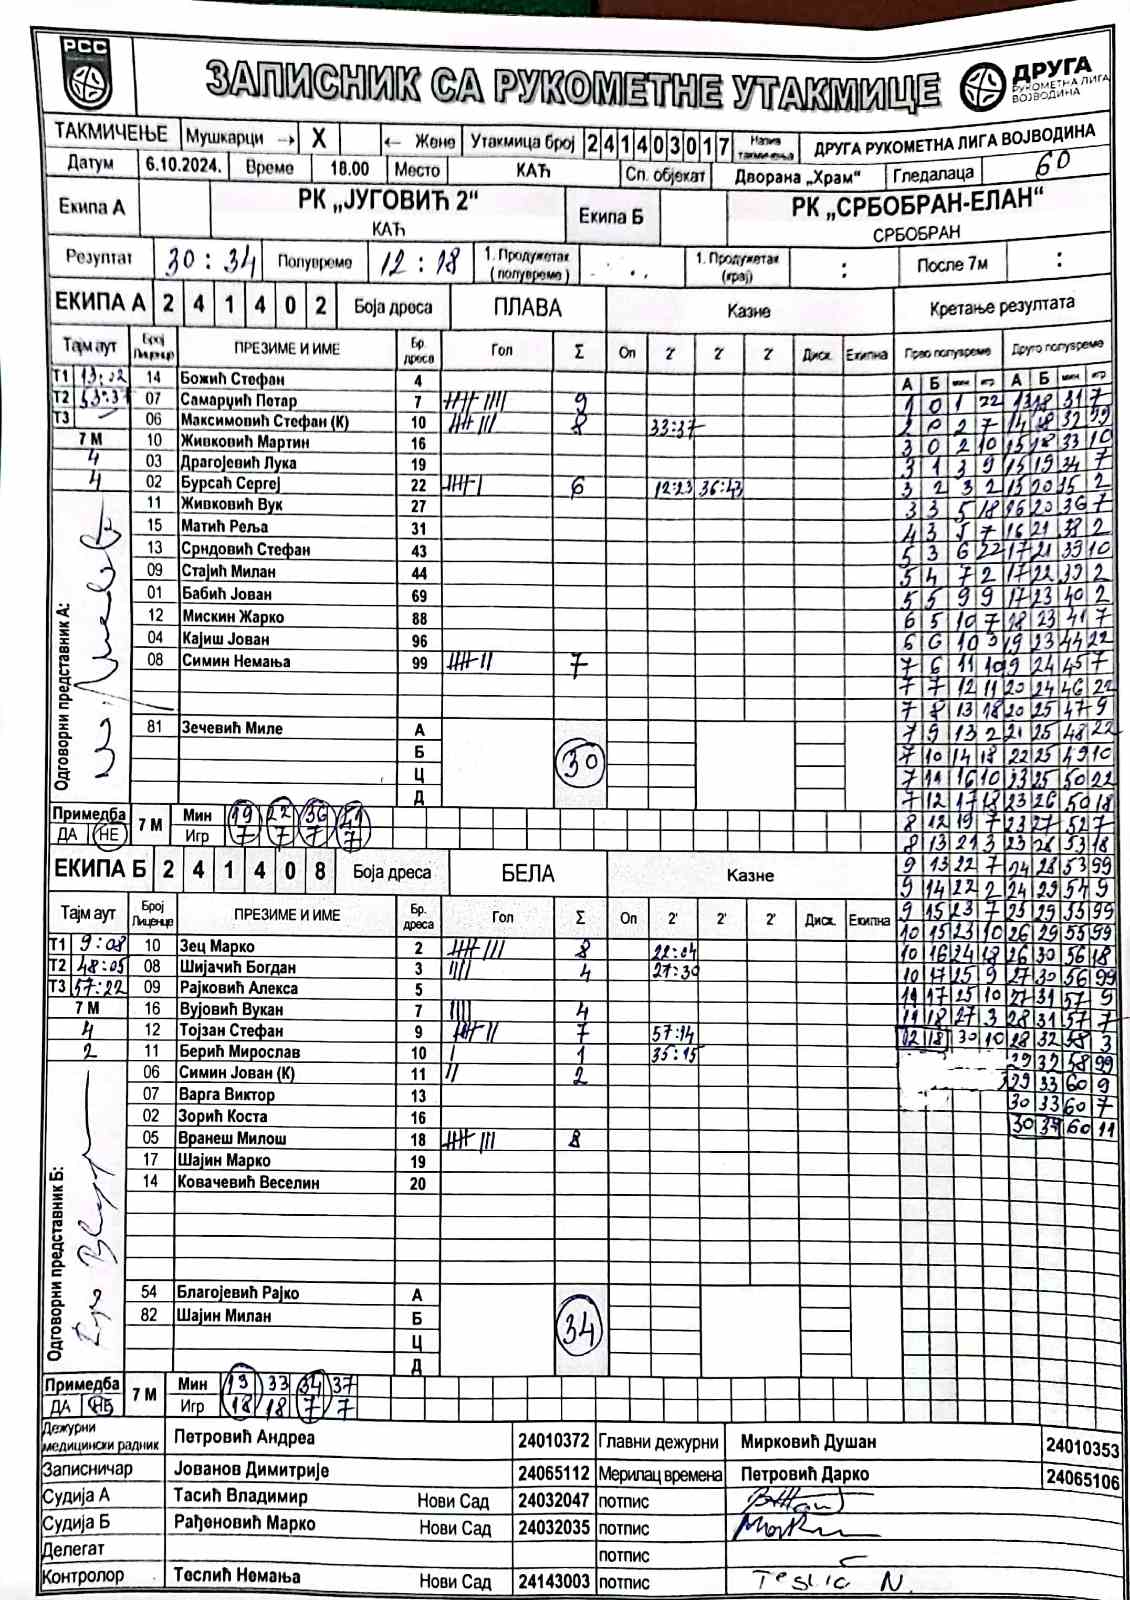 РСС
ЗАПИСНИК СА РУКОМЕТНЕ УТАКМИЦЕ
ДРУГА
РУКОМЕТНА ЛИГА
ВОЈВОДИНА
ТАКМИЧЕЊЕ Мушкарци → X ← Жене Утакмица број 2 4 1 4 0 3 0 1 7 Назив такмичења ДРУГА РУКОМЕТНА ЛИГА ВОЈВОДИНА
Датум 6.10.2024. Време 18.00 Место КАЋ Сп. објекат Дворана „Храм“ Гледалаца 60
Екипа А РК „ЈУГОВИЋ 2“ Екипа Б РК „СРБОБРАН-ЕЛАН“
КАЋ СРБОБРАН
Резултат 30 : 34 Полувреме 12 : 18 1. Продужетак (полувреме) 1. Продужетак (крај) : После 7м :
ЕКИПА А 2 4 1 4 0 2 Боја дреса ПЛАВА Казне Кретање резултата
Тајм аут Број Лиценце ПРЕЗИМЕ И ИМЕ Бр. дреса Гол Σ Оп 2' 2' 2' Диск. Екипна Прво полувреме Друго полувреме
А Б мин игр А Б мин игр
Т1 13:02 14 Божић Стефан 4
Т2 53:37 07 Самарџић Петар 7 9 1 0 1 22 13 18 31 7
Т3 06 Максимовић Стефан (К) 10 8 33:37 2 0 2 7 14 18 32 99
7 М 10 Живковић Мартин 16 3 0 2 10 15 18 33 10
4 03 Драгојевић Лука 19 3 1 3 9 15 19 34 7
4 02 Бурсаћ Сергеј 22 6 12:23 36:43 3 2 3 2 15 20 35 2
11 Живковић Вук 27 3 3 5 18 16 20 36 7
15 Матић Реља 31 4 3 5 7 16 21 38 2
13 Срндовић Стефан 43 5 3 6 22 17 21 39 10
09 Стајић Милан 44 5 4 7 2 17 22 39 2
01 Бабић Јован 69 5 5 9 9 17 23 40 2
12 Мискин Жарко 88 6 5 10 7 18 23 41 7
04 Кајиш Јован 96 6 6 10 3 19 23 44 22
08 Симин Немања 99 7 7 6 11 10 19 24 45 7
7 7 12 11 20 24 46 22
7 8 13 18 20 25 47 9
81 Зечевић Миле А 7 9 13 2 21 25 48 22
Б 30 7 10 14 18 22 25 49 10
Ц 7 11 16 10 23 25 50 22
Д 7 12 17 18 23 26 50 18
Одговорни представник А:
Примедба 7 М Мин 19 22 36 41 8 12 19 7 23 27 52 7
ДА НЕ Игр 7 7 7 7 8 13 21 3 23 28 53 18
ЕКИПА Б 2 4 1 4 0 8 Боја дреса БЕЛА Казне 9 13 22 7 24 28 53 99
9 14 22 2 24 29 54 9
Тајм аут Број Лиценце ПРЕЗИМЕ И ИМЕ Бр. дреса Гол Σ Оп 2' 2' 2' Диск. Екипна 9 15 23 7 25 29 55 99
Т1 9:08 10 Зец Марко 2 8 22:04 10 15 23 10 26 29 55 99
Т2 48:05 08 Шијачић Богдан 3 4 21:30 10 16 24 18 26 30 56 18
Т3 57:22 09 Рајковић Алекса 5 10 17 25 9 27 30 56 99
7 М 16 Вујовић Вукан 7 4 11 17 25 10 27 31 57 9
4 12 Тојзан Стефан 9 7 57:14 11 18 27 3 28 31 57 7
2 11 Берић Мирослав 10 1 35:15 12 18 30 10 28 32 58 3
06 Симин Јован (К) 11 2 29 32 58 99
07 Варга Виктор 13 29 33 60 9
02 Зорић Коста 16 30 33 60 7
05 Вранеш Милош 18 8 30 34 60 11
17 Шајин Марко 19
14 Ковачевић Веселин 20
54 Благојевић Рајко А
82 Шајин Милан Б 34
Ц
Д
Одговорни представник Б:
Примедба 7 М Мин 13 33 34 37
ДА НЕ Игр 18 18 7 7
Дежурни медицински радник Петровић Андреа 24010372 Главни дежурни Мирковић Душан 24010353
Записничар Јованов Димитрије 24065112 Мерилац времена Петровић Дарко 24065106
Судија А Тасић Владимир Нови Сад 24032047 потпис
Судија Б Рађеновић Марко Нови Сад 24032035 потпис
Делегат потпис
Контролор Теслић Немања Нови Сад 24143003 потпис Teslić N.